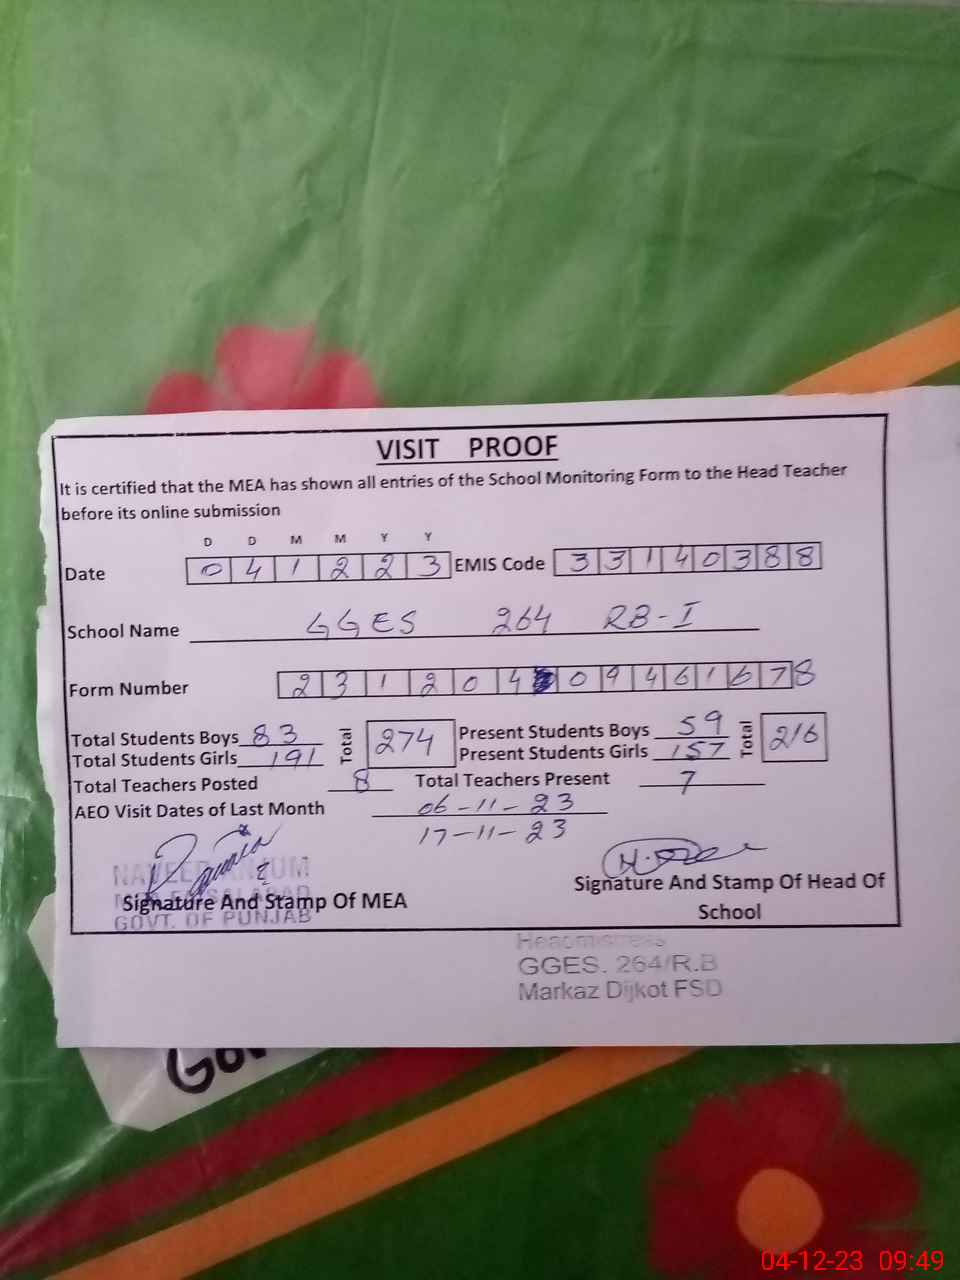 VISIT PROOF
It is certified that the MEA has shown all entries of the School Monitoring Form to the Head Teacher
before its online submission
D D M M Y Y
Date 0 4 1 2 2 3 EMIS Code 3 3 1 4 0 3 8 8
School Name GGES 264 RB-I
Form Number 2 3 1 2 0 4 0 9 4 6 1 6 7 8
Total Students Boys 83 Total 274 Present Students Boys 59 Total 216
Total Students Girls 191 Present Students Girls 157
Total Teachers Posted 8 Total Teachers Present 7
AEO Visit Dates of Last Month 06-11-23
17-11-23
NAVEED ANJUM
MEA FAISALABAD
Signature And Stamp Of MEA
GOVT. OF PUNJAB
Signature And Stamp Of Head Of
School
Headmistress
GGES. 264/R.B
Markaz Dijkot FSD
04-12-23 09:49